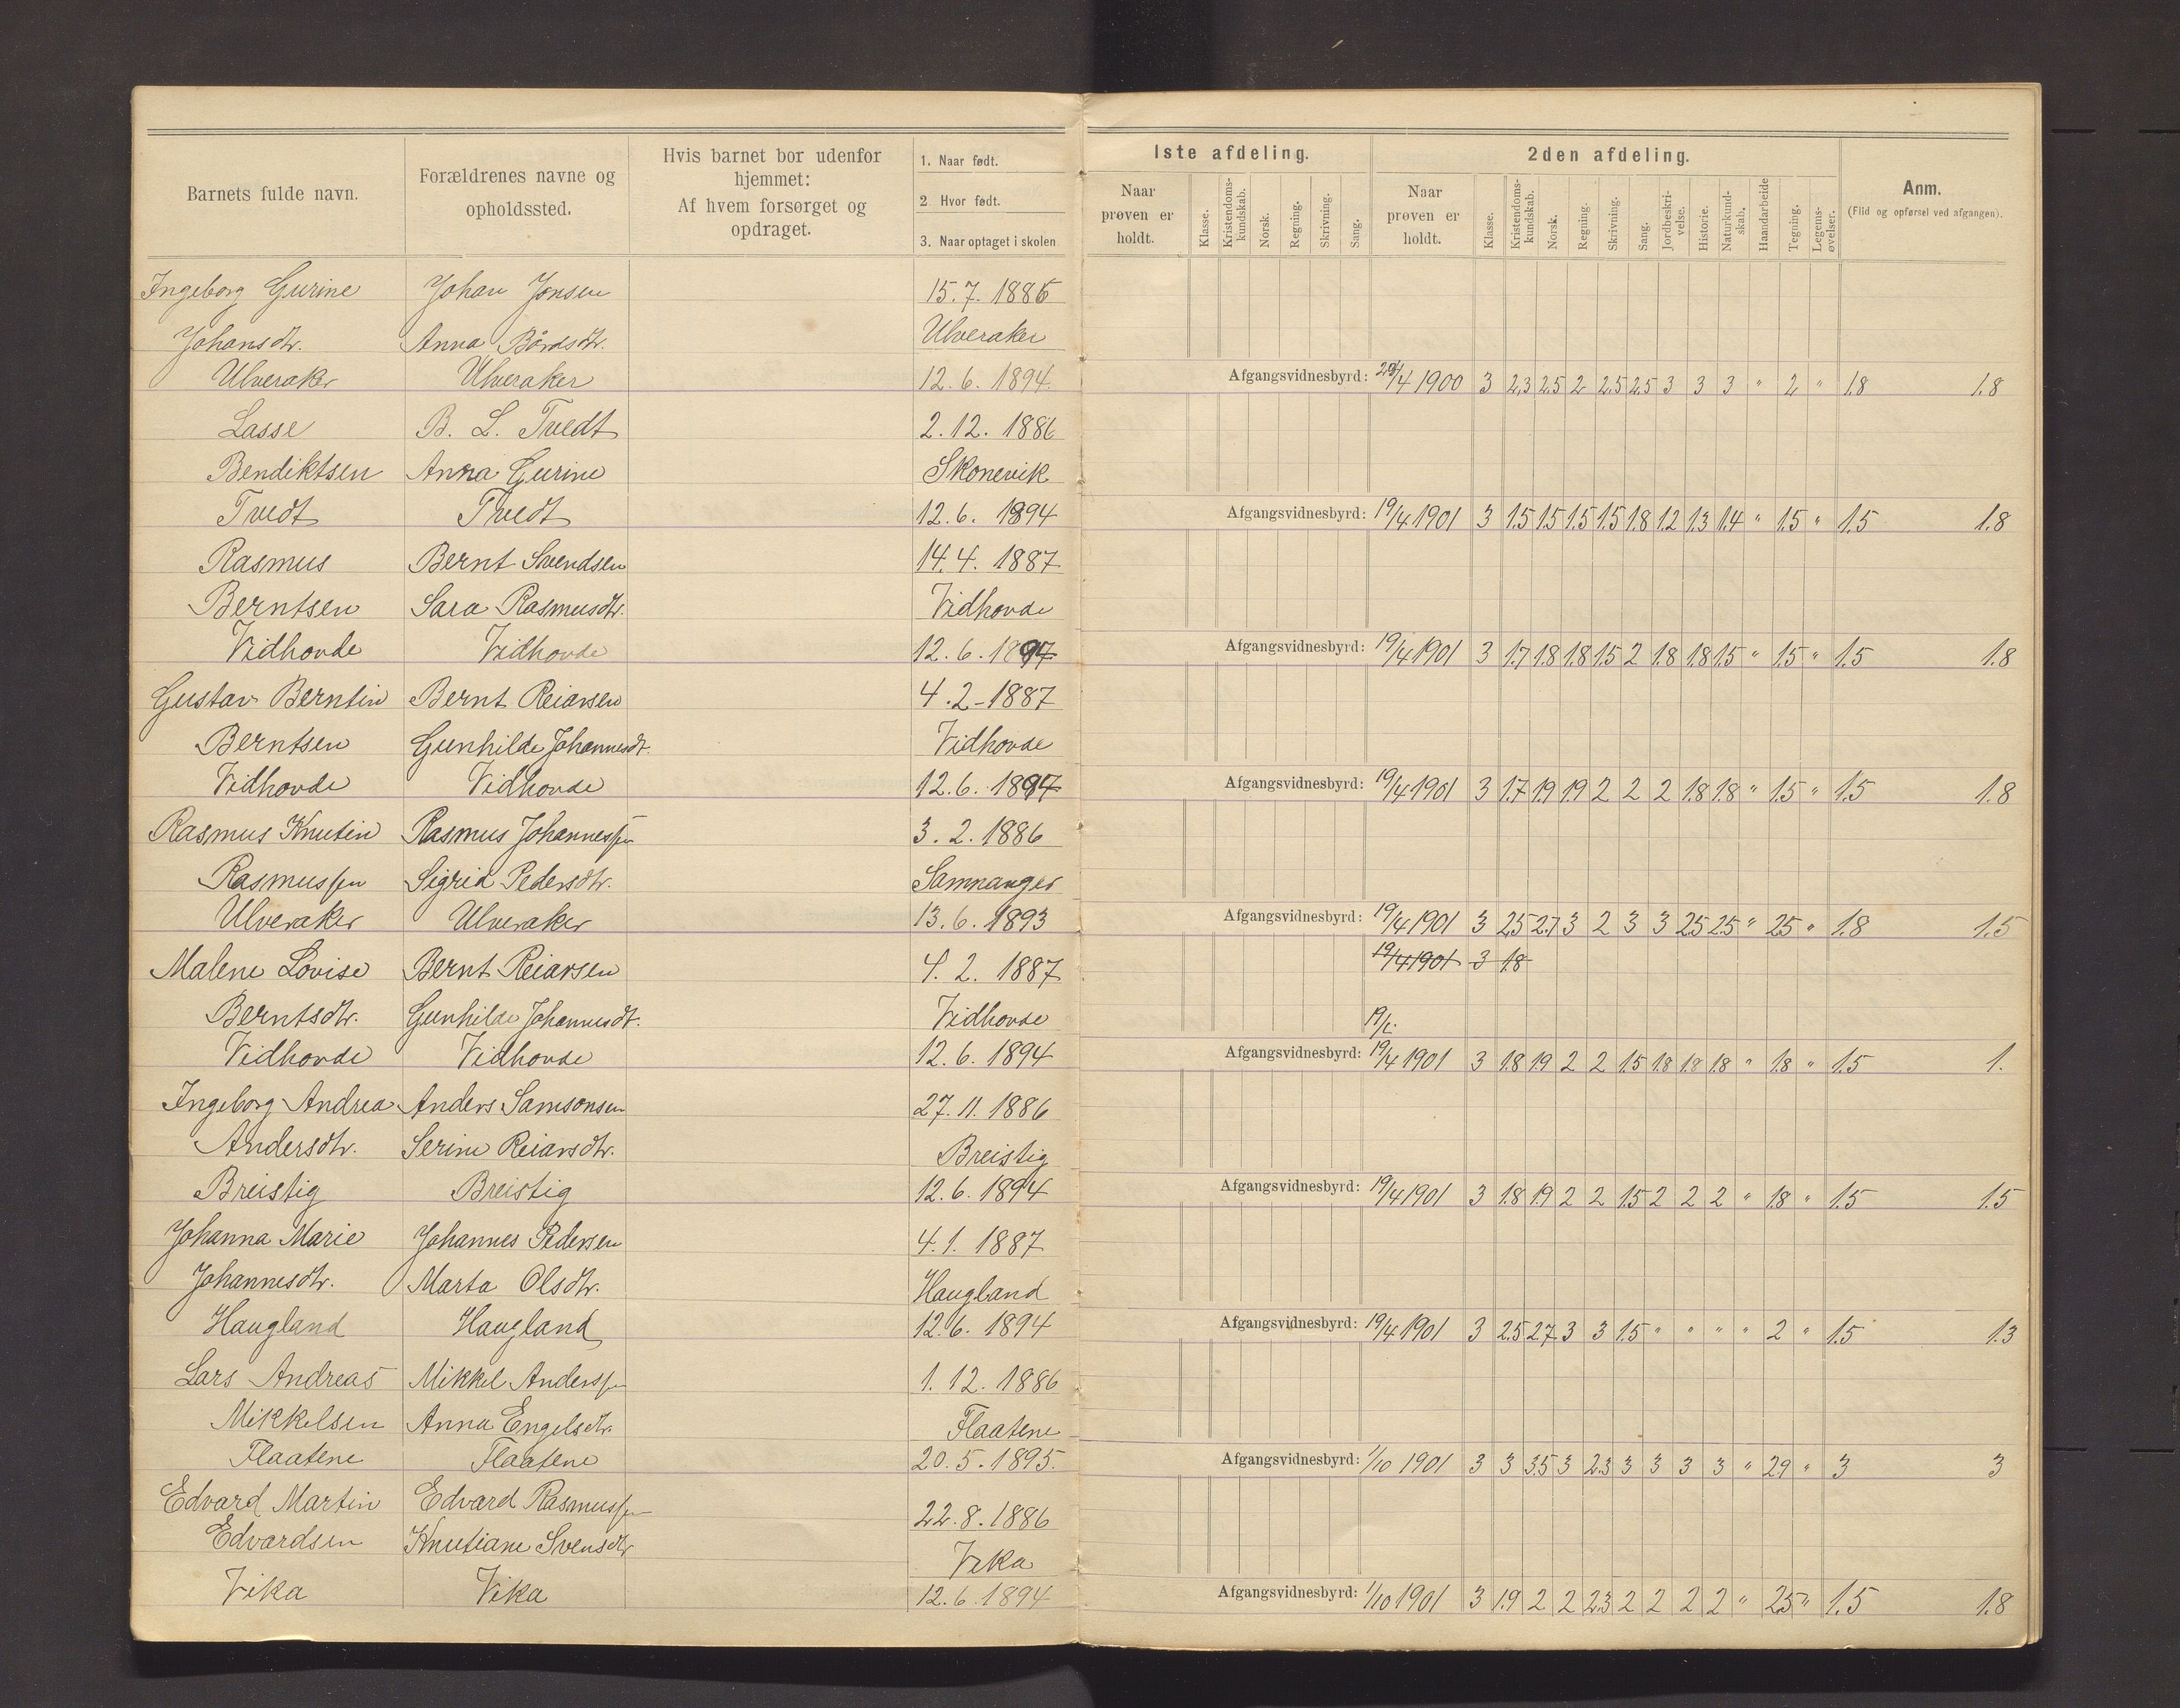 Barnets fulde navn.
Forældrenes navne og
opholdssted.
Hvis barnet bor udenfor
hjemmet:
Af hvem forsørget og
opdraget.
1. Naar født.
2 Hvor født.
3. Naar optaget i skolen
1ste afdeling.
2den afdeling.
Naar
prøven er
holdt.
Klasse.
Kristendoms-
kundskab.
Norsk.
Regning.
Skrivning.
Sang.
Naar
prøven er
holdt.
Klasse.
Kristendoms-
kundskab.
Norsk.
Regning.
Skrivning.
Sang.
Jordbeskri-
velse.
Historie.
Naturkund-
skab.
Haandarbeide
Tegning.
Legems-
øvelser.
Anm.
(Flid og opførsel ved afgangen).
Ingeborg Gurine Johan Jonsen 15.7.1886
Johansdtr. Anna Bårdsdtr. Ulveraker
Ulveraker Ulveraker 12.6.1894. Afgangsvidnesbyrd: /4 1900 3 2,3 2,5 2 2,5 2,5 3 3 3 " 2 " 1.8 1.8
Lasse B. L. Tvedt 2.12.1886
Bendiktsen Anna Gurine Skonevik
Tvedt Tvedt 12.6.1894 Afgangsvidnesbyrd: 19/4 1901 3 1.5 1.5 1.5 1.5 1.8 1.2 1.3 1.4 " 1.5 " 1.5 1.8
Rasmus Bernt Svendsen 14.4.1887
Berntsen Sara Rasmusdtr. Vidhovde
Vidhovde Vidhovde 12.6.1894 Afgangsvidnesbyrd: 19/4 1901 3 1.7 1.8 1.8 1.5 2 1.8 1.8 1.5 " 1.5 " 1.5 1.8
Gustav Berntin Bernt Reiarsen 4.2-1887
Berntsen Gunhilde Johannesdt. Vidhovde
Vidhovde Vidhovde 12.6.1894 Afgangsvidnesbyrd: 19/4 1901 3 1.7 1.9 1.9 2 2 2 1.8 1.8 " 1.5 " 1.5 1.8
Rasmus Knutin Rasmus Johannessen 3.2.1886
Rasmussen Sigrid Pedersdtr. Samnanger
Ulveraker Ulveraker 13.6.1893 Afgangsvidnesbyrd: 19/4 1901 3 2,5 2.7 3 2 3 3 2.5 2.5 " 2.5 " 1.8 1.5
Malene Lovise Bernt Reiarsen 4.2.1887 19/4 1901 3 1.8
Berntsdtr. Gunhilde Johannesdt. Vidhovde 19/
Vidhovde Vidhovde 12.6.1894 Afgangsvidnesbyrd: 19/4 1901 3 1.8 1.9 2 2 1.5 1.8 1.8 1.8 " 1.8 " 1.5 1.
Ingeborg Andrea Anders Samsonsen 27.11.1886
Andersdtr. Serine Reiarsdtr. Breistig
Breistig Breistig 12.6.1894 Afgangsvidnesbyrd: 19/4 1901 3 1.8 1.9 2 2 1.5 2 2 2 " 1.8 " 1.5 1.5
Johanna Marie Johannes Pedersen 4.1.1887
Johannesdtr. Marta Olsdtr. Haugland
Haugland Haugland 12.6.1894 Afgangsvidnesbyrd: 19/4 1901 3 2.5 2.7 3 3 1.5 " " " " 2 " 1.5 1.3
Lars Andreas Mikkel Anderssen 1.12.1886
Mikkelsen Anna Engelsdtr. Flaatene
Flaatene Flaatene 20.5.1895. Afgangsvidnesbyrd: 1/10 1901 3 3 3.5 3 2.3 3 3 3 3 " 2.9 " 3 3
Edvard Martin Edvard Rasmussen 22.8.1886
Edvardsen Knutiane Svensdtr Vika
Vika Vika 12.6.1894 Afgangsvidnesbyrd: 1/10 1901 3 1.9 2 2 2.3 2 2 2 2 " 2.5 " 1.5 1.8